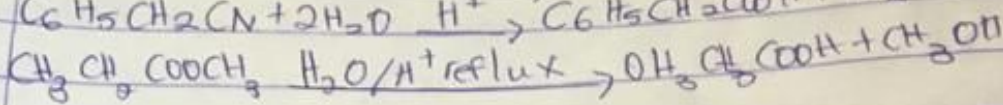 C6H5CH2CN+2H2O H+ → C6H5CH2CO
CH3 CH2 COOCH3 H2O/H+ reflux → OH3 CH3 COOH + CH3OH